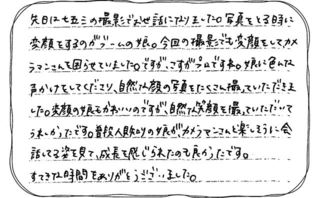 先日は七五三の撮影でお世話になりました。写真をとる時に
変顔をするのがブームの娘。今回の撮影でも変顔をしてカメ
ラマンさんを困らせていました。ですが、さすがプロですね。娘に色んな
声かけをしてくださり、自然な顔の写真をたくさん撮っていただきま
した。変顔の娘もかわいいのですが、自然な笑顔を撮っていただいて
うれしかったです。普段人見知りの娘がカメラマンさんと楽しそうに会
話してる姿を見て、成長を感じられたのも良かったです。
すてきな時間をありがとうございました。